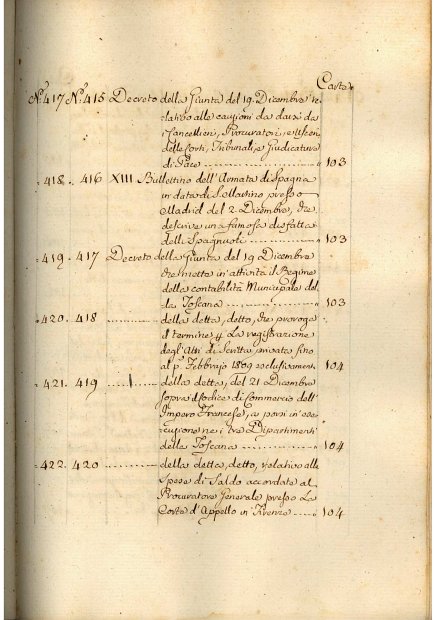 Carte
N.° 417 N.° 415 Decreto della Giunta del 19. Dicembre re-
lativo alle cauzioni da darsi da
i Cancellieri, Procuratori, e Uscieri
delle Corti, Tribunali, e Giudicature
di Pace 103
418. 416 XIII Bullettino dell'Armata di Spagna
in data di S. Martino presso
Madrid del 2 Dicembre, che
descrive una famosa disfatta
delli Spagnuoli 103
419. 417 Decreto della Giunta del 19 Dicembre
che mette in attività il Regime
della contabilità Municipale del-
la Toscana 103
420. 418 della detta, detto, che proroga
il termine p. La registrazione
degl'Atti di Scritta privata fino
al p.° Febbrajo 1809 esclusivament. 104
421. 419 della detta, del 21 Dicembre
sopra il Codice di Commercio dell'
Impero Francese, a porsi in ese-
cuzione ne i tre Dipartimenti
della Toscana 104
422. 420 della detta, detto, relativo alle
Spese di Saldo accordate al
Procuratore Generale presso La
Corte d'Appello in Firenze 104